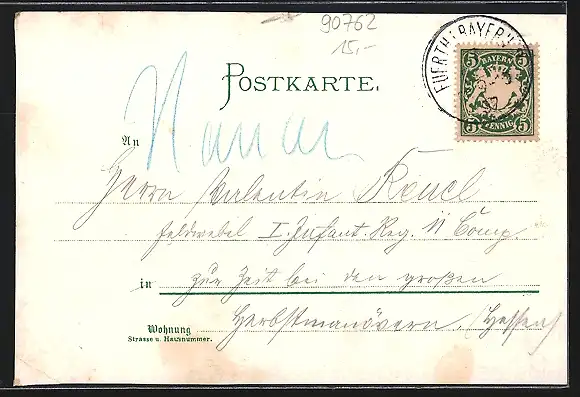 90762
15,-
FUERTH (BAYERN)
5 BAYERN 5
5 PFENNIG 5
POSTKARTE.
An
Herrn Valentin
Feldwebel I. Infant. Reg. 11 Comp.
in zur Zeit bei den großen
Wohnung Herbstmanövern. (Hessen)
Strasse u. Hausnummer.